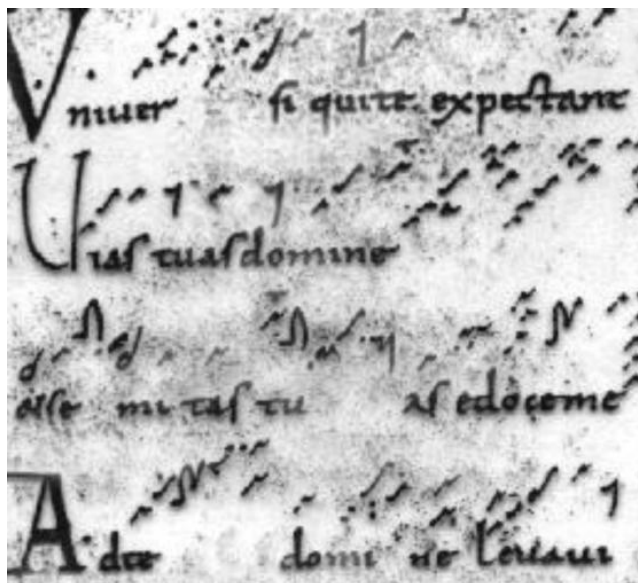 Vniuer si qui te expectant
Uias tuas domine
& se mi tas tu as edoceme
Ad te domi ne leuaui